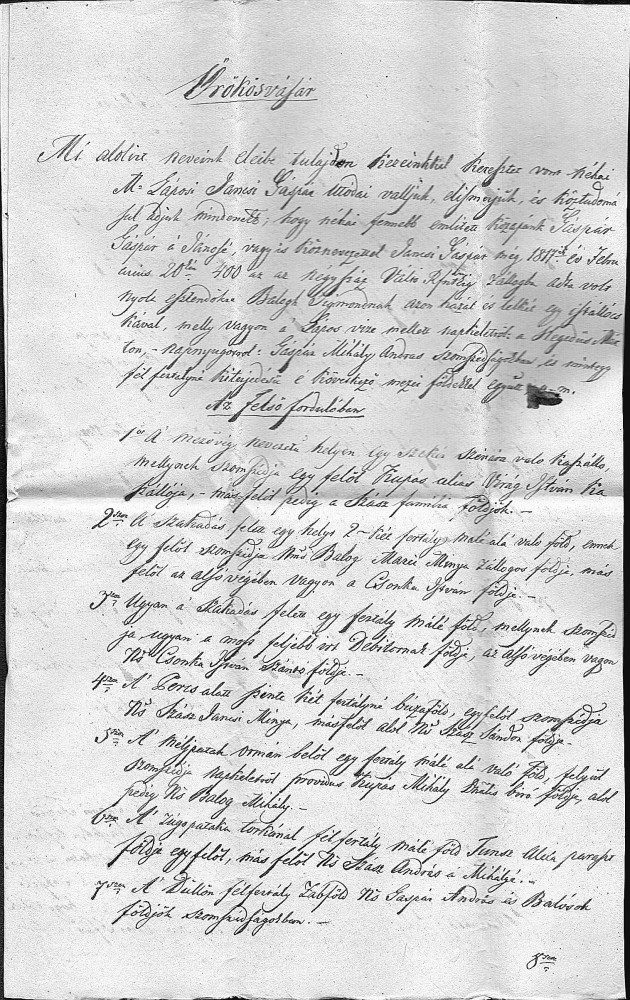 Örökösvásár
Mi alólirt neveink eleibe tulajdon kezeinkkel keresztet vont Néhai
M. Láposi Jancsi Gáspár Utódai valljuk, elismerjük, és köztudomá
sul adjuk mindenelt; hogy néhai fennebb emlitett közapánk Gáspár
Gáspár a Jánosé, vagyis köznevezettel Jancsi Gáspár még 1817 év Febru
árius 20án 400 az az négyszáz Váltó Rftokig zállogba adta volt
nyolc esztendőkre Balogh Sigmondnak azon házát és telkét egy istállócs
kával, melly vagyon a Lápos vize mellett napkeletről: a Hegedüs Már
ton, - napnyugorol: Gáspár Mihály Andras szomszédságokban, és mintegy
fél fertályra kiterjedésü é következő mezei földekkel együtt u. m.
Az felső fordulóban
1ör A mezővég nevezetü helyen egy szekér szénára való kaszálló,
mellynek szomszédja egy felől Kupás alias Virág István ka
szállója, - más felöl pedig a Szász familia földjök. -
2szor A Szakadás felett egy helyt 2 - két fertály málé alá való föld, ennek
egy felöl szomszédja Nms Balog Mári Minya zálogos földje, más
felöl az alsó végében vagyon a Csonka Istvan földje. -
3szor Ugyan a Szakadás felett egy fertály málé föld, mellynek szomszéd
ja ugyan a most feljebb irt Debitornak földje, az alsó végében vagyon
Ns Csonka Istvan Szántó földje. -
4szer A' Porcs alatt pente két fertályné búzaföld, egyfelöl szomszédja
Ns Szász Jancsi Minya, másfelöl alól Ns Szász Sándor földje -
5ször A' Mélypatak ormán belöl egy fertály málé alá való föld, felyül
szomszédja napkeletről providus Kupás Mihály földje, alól
pedig Ns Balog Mihály. -
6szor A' Zúgópataka torkánál félfertály málé föld Juncz Alexa paraszt
földje egyfelöl, más felöl Ns Szász András a Mihályé. -
7szer A' Düllön félfertály Zabföld Ns Gáspár András és Balósok
földjök szomszédságokban. -
8szor